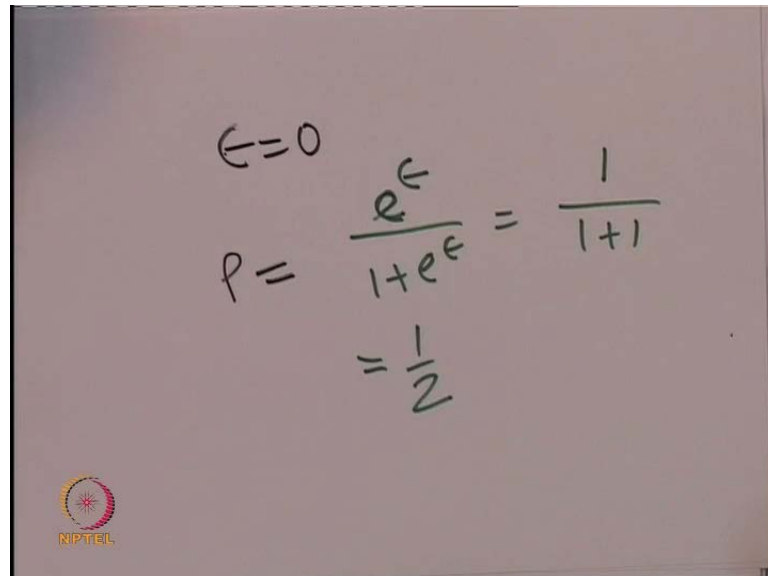 ϵ=0
P = e^ϵ / 1+e^ϵ = 1 / 1+1
= 1/2
NPTEL